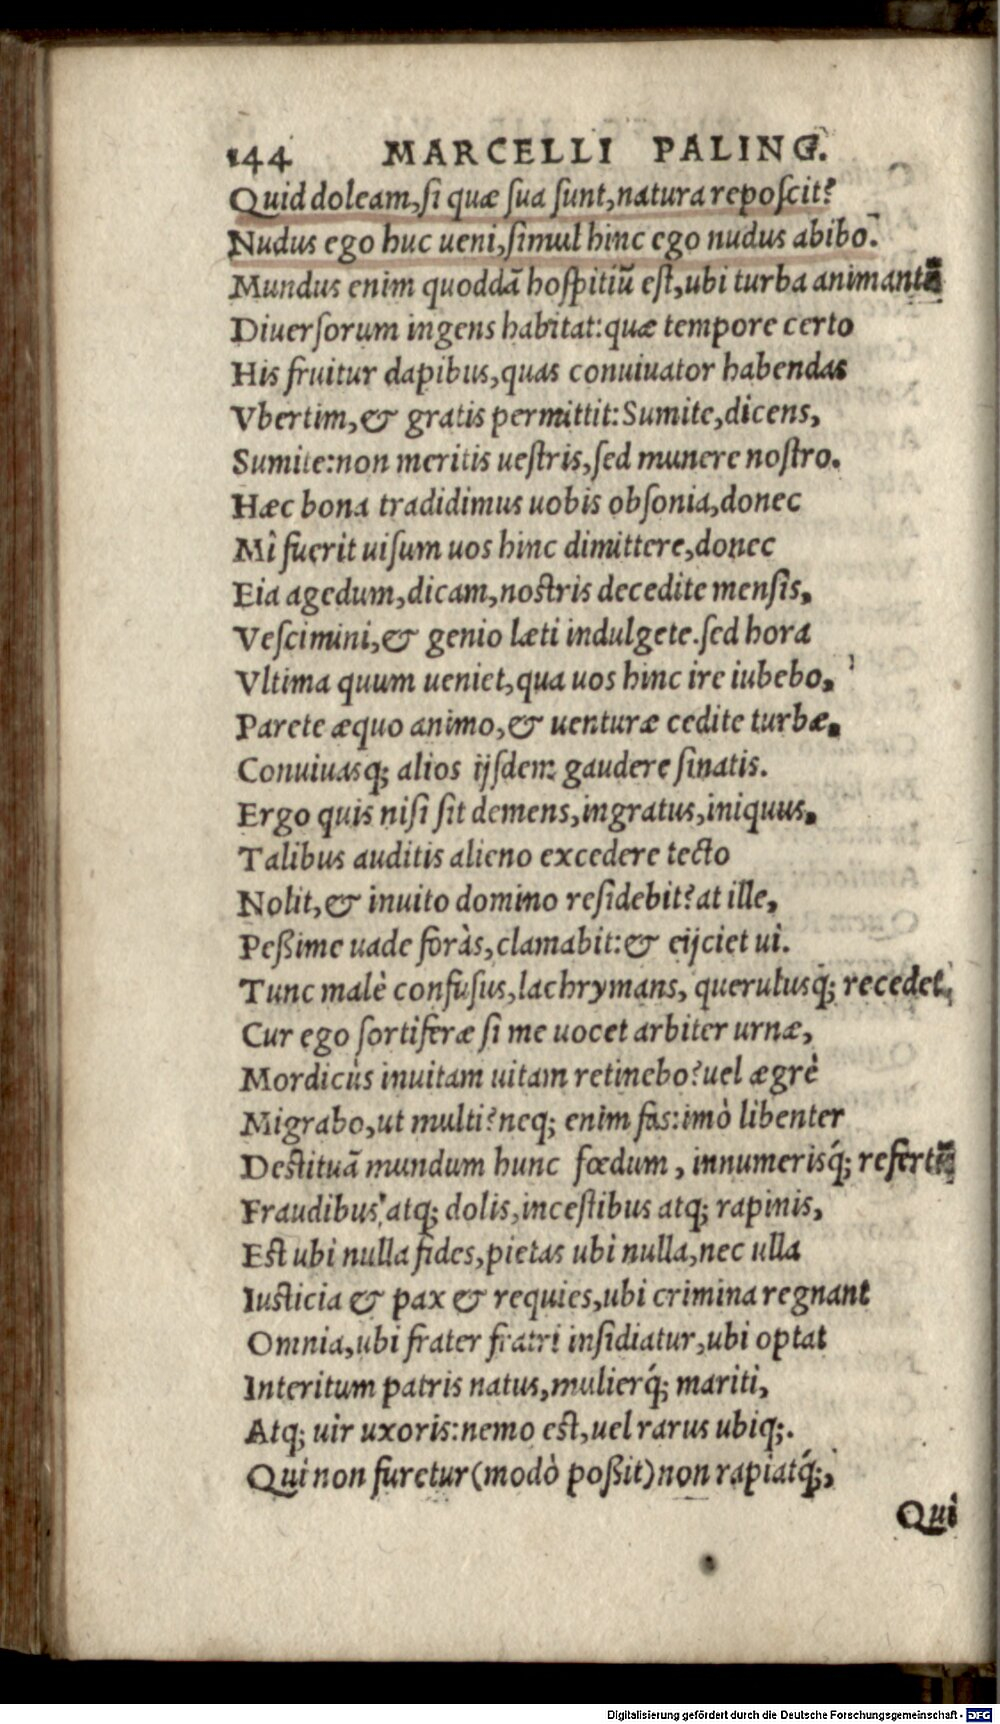 144 MARCELLI PALING.
Quid doleam, si quæ sua sunt, natura reposcit?
Nudus ego huc ueni, simul hinc ego nudus abibo.
Mundus enim quoddã hospitiũ est, ubi turba animantũ
Diuersorum ingens habitat: quæ tempore certo
His fruitur dapibus, quas conuiuator habendas
Vbertim, & gratis permittit: Sumite, dicens,
Sumite: non meritis uestris, sed munere nostro.
Hæc bona tradidimus uobis obsonia, donec
Mî fuerit uisum uos hinc dimittere, donec
Eia agedum, dicam, nostris decedite mensis,
Vescimini, & genio læti indulgete. sed hora
Vltima quum ueniet, qua uos hinc ire iubebo,
Parete æquo animo, & uenturæ cedite turbæ,
Conuiuasq; alios ijsdem gaudere sinatis.
Ergo quis nisi sit demens, ingratus, iniquus,
Talibus auditis alieno excedere tecto
Nolit, & inuito domino residebit? at ille,
Peßime uade foràs, clamabit: & eijciet ui.
Tunc malè confusus, lachrymans, querulusq́; recedet,
Cur ego sortiferæ si me uocet arbiter urnæ,
Mordicùs inuitam uitam retinebo? uel ægrè
Migrabo, ut multi? neq; enim fas: imò libenter
Destituã mundum hunc fœdum, innumerisq́; refertũ
Fraudibus, atq; dolis, incestibus atq; rapinis,
Est ubi nulla fides, pietas ubi nulla, nec ulla
Iusticia & pax & requies, ubi crimina regnant
Omnia, ubi frater fratri insidiatur, ubi optat
Interitum patris natus, mulierq́; mariti,
Atq; uir uxoris: nemo est, uel rarus ubiq;.
Qui non furetur (modò poßit) non rapiatq́;,
Qui
Digitalisierung gefördert durch die Deutsche Forschungsgemeinschaft - DFG